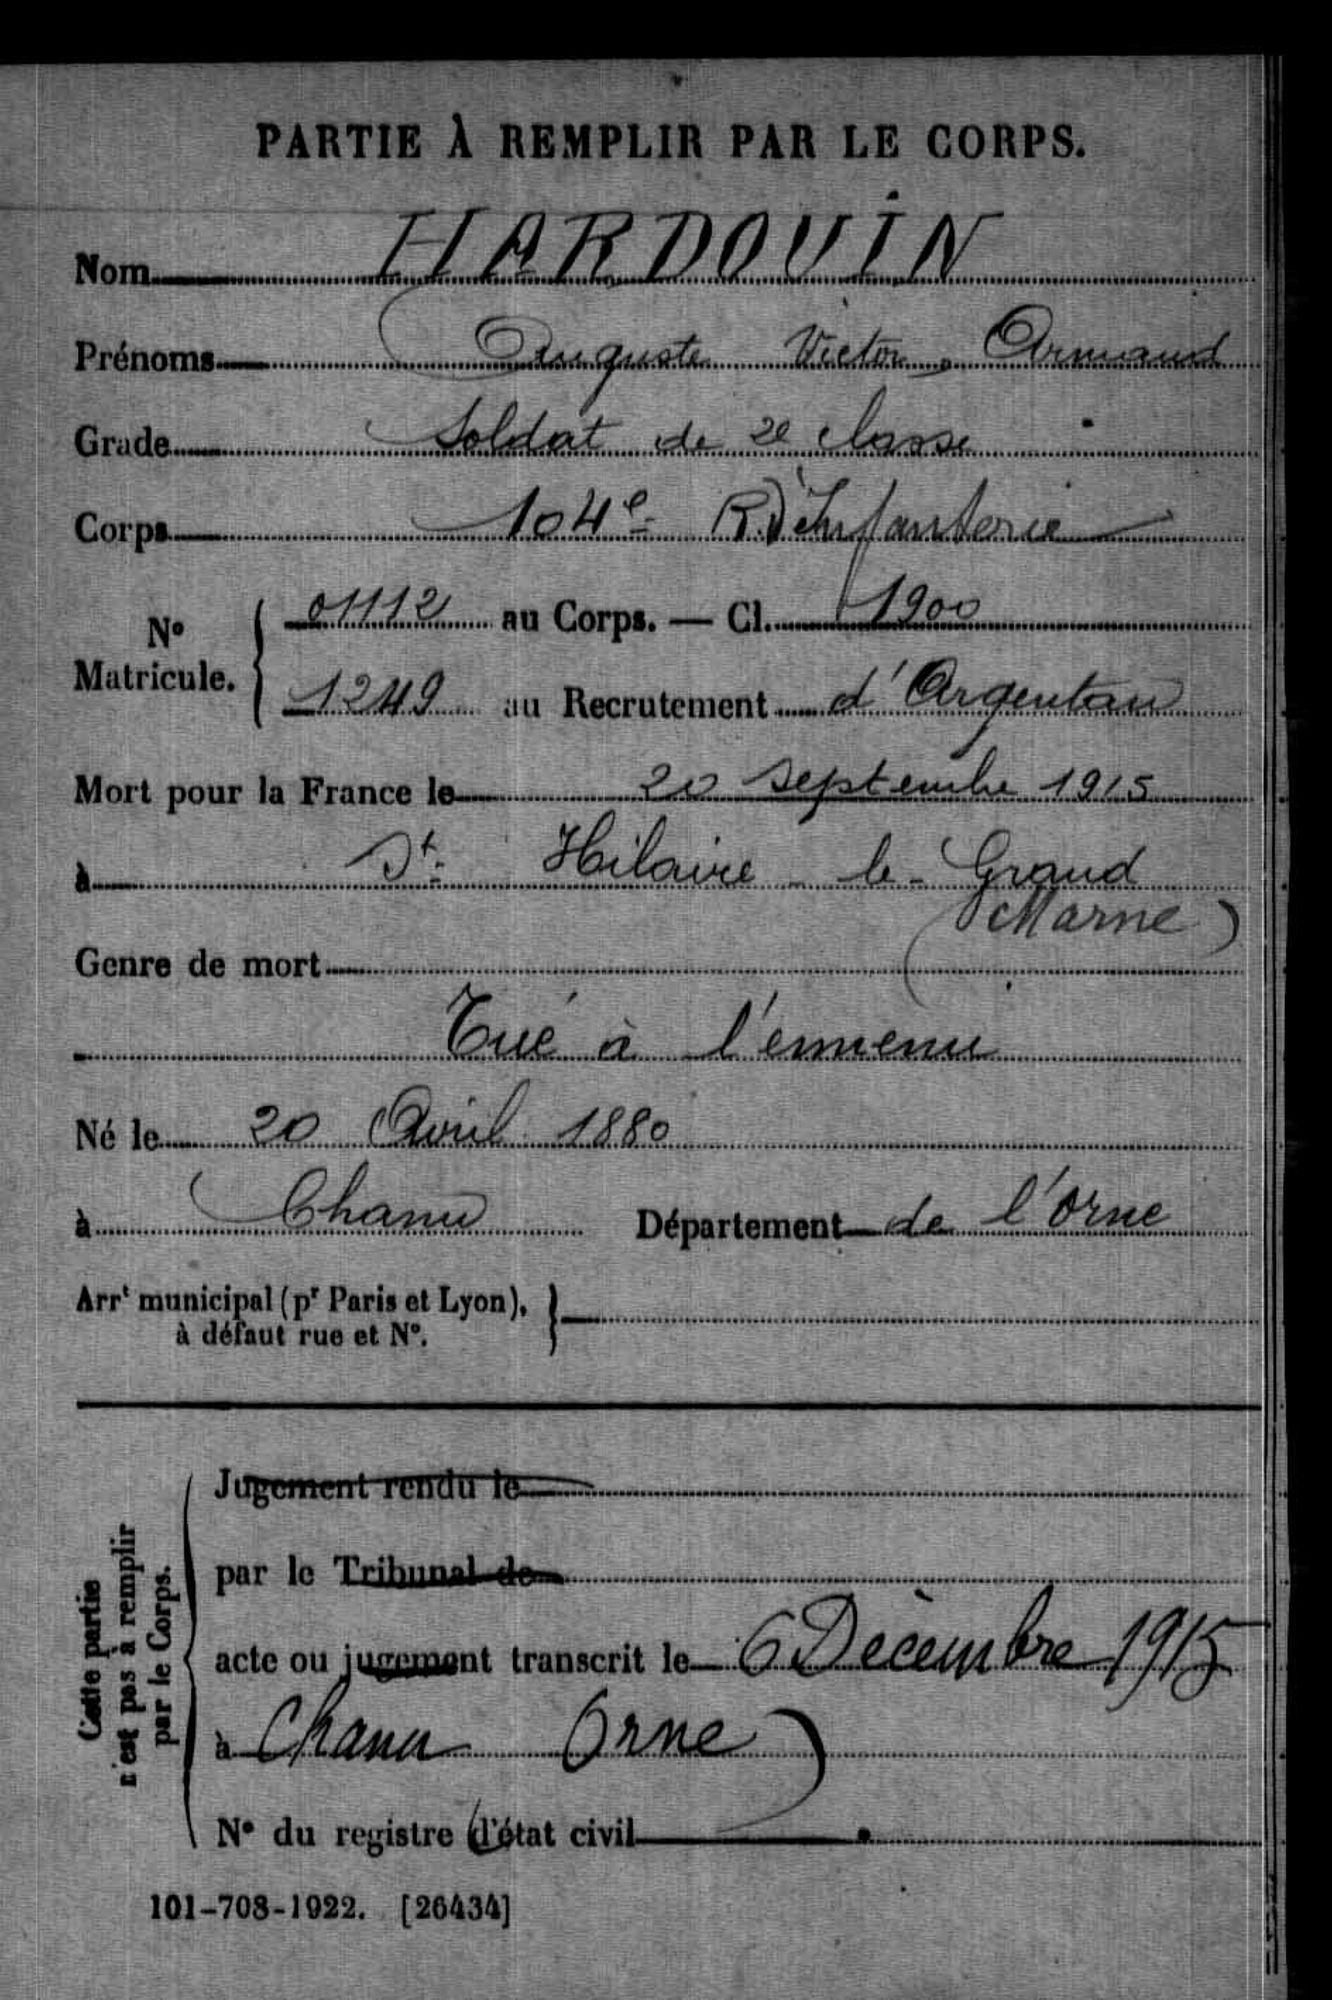 PARTIE À REMPLIR PAR LE CORPS.
Nom HARDOUIN
Prénoms Auguste Victor Armand
Grade Soldat de 2e classe
Corps 104e R. d'Infanterie
No Matricule. { 01112 au Corps. — Cl. 1900
1249 au Recrutement d'Argentan
Mort pour la France le 20 septembre 1915
à St Hilaire - le - Grand
(Marne)
Genre de mort
Tué à l'ennemi
Né le 20 Avril 1880
à Chanu Département de l'Orne
Arrt municipal (pr Paris et Lyon),
à défaut rue et No.
Cette partie
n'est pas à remplir
par le Corps.
Jugement rendu le
par le Tribunal de
acte ou jugement transcrit le 6 Décembre 1915
à Chanu (Orne)
No du registre d'état civil
101-708-1922. [26434]